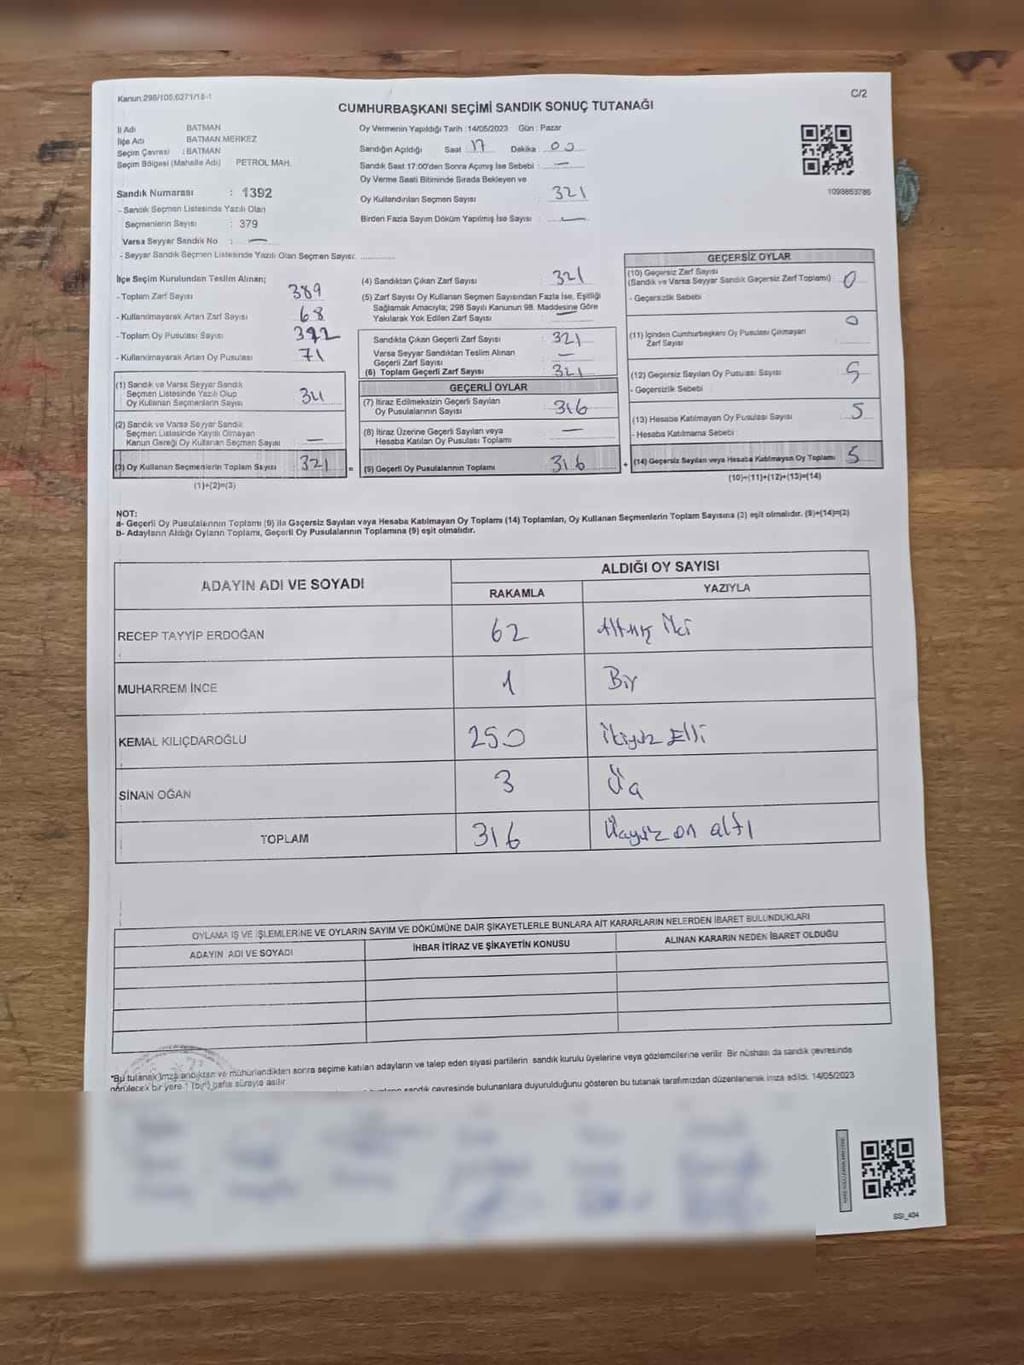 Kanun:298/105,6271/18-1
C/2
CUMHURBAŞKANI SEÇİMİ SANDIK SONUÇ TUTANAĞI
İl Adı BATMAN
İlçe Adı BATMAN MERKEZ
Seçim Çevresi : BATMAN
Seçim Bölgesi (Mahalle Adı) PETROL MAH.
Oy Vermenin Yapıldığı Tarih :14/05/2023 Gün : Pazar
Sandığın Açıldığı Saat 17 Dakika : 00
Sandık Saat 17:00'den Sonra Açılmış İse Sebebi : —
Oy Verme Saati Bitiminde Sırada Bekleyen ve
Oy Kullandırılan Seçmen Sayısı 321
Birden Fazla Sayım Döküm Yapılmış İse Sayısı : —
1093853785
Sandık Numarası : 1392
- Sandık Seçmen Listesinde Yazılı Olan
Seçmenlerin Sayısı : 379
Varsa Seyyar Sandık No : —
- Seyyar Sandık Seçmen Listesinde Yazılı Olan Seçmen Sayısı: ............
İlçe Seçim Kurulundan Teslim Alınan;
- Toplam Zarf Sayısı 389
- Kullanılmayarak Artan Zarf Sayısı 68
- Toplam Oy Pusulası Sayısı 392
- Kullanılmayarak Artan Oy Pusulası 71
(1) Sandık ve Varsa Seyyar Sandık
Seçmen Listesinde Yazılı Olup
Oy Kullanan Seçmenlerin Sayısı 321
(2) Sandık ve Varsa Seyyar Sandık
Seçmen Listesinde Kayıtlı Olmayan
Kanun Gereği Oy Kullanan Seçmen Sayısı —
(3) Oy Kullanan Seçmenlerin Toplam Sayısı 321 =
(1)+(2)=(3)
(4) Sandıktan Çıkan Zarf Sayısı 321
(5) Zarf Sayısı Oy Kullanan Seçmen Sayısından Fazla İse, Eşitliği
Sağlamak Amacıyla; 298 Sayılı Kanunun 98. Maddesine Göre
Yakılarak Yok Edilen Zarf Sayısı —
Sandıkta Çıkan Geçerli Zarf Sayısı 321
Varsa Seyyar Sandıktan Teslim Alınan
Geçerli Zarf Sayısı —
(6) Toplam Geçerli Zarf Sayısı 321
GEÇERLİ OYLAR
(7) İtiraz Edilmeksizin Geçerli Sayılan
Oy Pusulalarının Sayısı 316
(8) İtiraz Üzerine Geçerli Sayılan veya
Hesaba Katılan Oy Pusulası Toplamı —
(9) Geçerli Oy Pusulalarının Toplamı 316 +
GEÇERSİZ OYLAR
(10) Geçersiz Zarf Sayısı
(Sandık ve Varsa Seyyar Sandık Geçersiz Zarf Toplamı) 0
- Geçersizlik Sebebi
(11) İçinden Cumhurbaşkanı Oy Pusulası Çıkmayan
Zarf Sayısı 0
(12) Geçersiz Sayılan Oy Pusulası Sayısı 5
- Geçersizlik Sebebi
(13) Hesaba Katılmayan Oy Pusulası Sayısı 5
- Hesaba Katılmama Sebebi
(14) Geçersiz Sayılan veya Hesaba Katılmayan Oy Toplamı 5
(10)+(11)+(12)+(13)=(14)
NOT:
a- Geçerli Oy Pusulalarının Toplamı (9) ile Geçersiz Sayılan veya Hesaba Katılmayan Oy Toplamı (14) Toplamları, Oy Kullanan Seçmenlerin Toplam Sayısına (3) eşit olmalıdır. (9)+(14)=(3)
b- Adayların Aldığı Oyların Toplamı, Geçerli Oy Pusulalarının Toplamına (9) eşit olmalıdır.
ADAYIN ADI VE SOYADI ALDIĞI OY SAYISI
RAKAMLA YAZIYLA
RECEP TAYYİP ERDOĞAN 62 Altmış iki
MUHARREM İNCE 1 Bir
KEMAL KILIÇDAROĞLU 250 İkiyüz Elli
SİNAN OĞAN 3 Üç
TOPLAM 316 Üçyüz on altı
OYLAMA İŞ VE İŞLEMLERİNE VE OYLARIN SAYIM VE DÖKÜMÜNE DAİR ŞİKAYETLERLE BUNLARA AİT KARARLARIN NELERDEN İBARET BULUNDUKLARI
ADAYIN ADI VE SOYADI İHBAR İTİRAZ VE ŞİKAYETİN KONUSU ALINAN KARARIN NEDEN İBARET OLDUĞU
*Bu tutanak imzalandıktan ve mühürlendikten sonra seçime katılan adayların ve talep eden siyasi partilerin sandık kurulu üyelerine veya gözlemcilerine verilir. Bir nüshası da sandık çevresinde
görülecek bir yere 1 (bir) hafta süreyle asılır
sandık çevresinde bulunanlara duyurulduğunu gösteren bu tutanak tarafımızdan düzenlenerek imza edildi. 14/05/2023
SSI_404